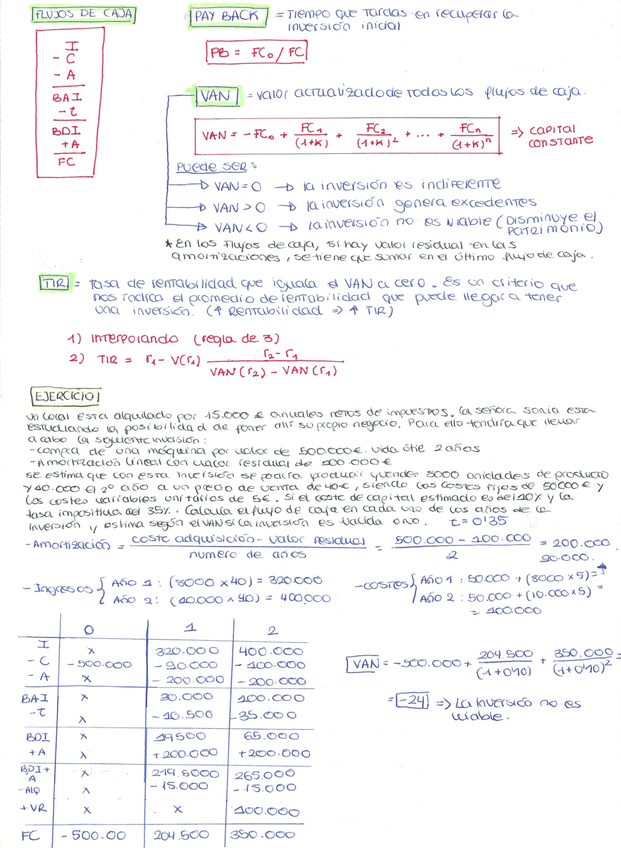 FLUJOS DE CAJA
I
- C
- A
BAI
- t
BDI
+A
FC
PAY BACK = Tiempo que tardas en recuperar la
inversión inicial
PB = FC₀ / FC
VAN = valor actualizado de todos los flujos de caja.
VAN = -FC₀ + FC₁/(1+K) + FC₂/(1+K)² + ... + FCn/(1+K)ⁿ => CAPITAL
CONSTANTE
Puede ser:
→ VAN = 0 → la inversión es indiferente
→ VAN > 0 → la inversión genera excedentes
→ VAN < 0 → la inversión no es viable (Disminuye el
patrimonio)
* En los flujos de caja, si hay valor residual en las
amortizaciones, se tiene que sumar en el último flujo de caja.
TIR = tasa de rentabilidad que iguala el VAN a cero. Es un criterio que
nos indica el promedio de rentabilidad que puede llegar a tener
una inversión. (↑ Rentabilidad => ↑ TIR)
1) Interpolando (regla de 3)
2) TIR = r₁ - V(r₁) r₂ - r₁ / VAN(r₂) - VAN(r₁)
EJERCICIO
Un local esta alquilado por 15.000 € anuales netos de impuestos. la señora Sonia esta
estudiando la posibilidad de poner allí su propio negocio. Para ello tendría que llevar
a cabo la siguiente inversión:
- compra de una máquina por valor de 500.000€. Vida útil 2 años
- Amortización lineal con valor residual de 100.000 €
Se estima que con esta inversión se podría producir y vender 8000 unidades de producto
y 10.000 el 2º año a un precio de venta de 40€, siendo los costes fijos de 50000 € y
los costes variables unitarios de 5€. Si el coste de capital estimado es del 10% y la
tasa impositiva del 35%. Calcula el flujo de caja en cada uno de los años de la
inversión y estima según el VAN si la inversión es válida o no. t = 0'35
- Amortización = coste adquisición - valor residual / numero de años = 500.000 - 100.000 / 2 = 200.000
- Ingresos { Año 1: (8000 x 40) = 320000
Año 2: (10.000 x 40) = 400.000
- costes { Año 1: 50.000 + (8000 x 5) = 90.000
Año 2: 50.000 + (10.000 x 5) =
= 100.000
0 1 2
I x 320.000 400.000
- C -500.000 -90.000 -100.000
- A x -200.000 -200.000
BAI x 30.000 100.000
- t x -10.500 -35.000
BDI x 19500 65.000
+ A x +200.000 +200.000
BDI + A x 219.5000 265.000
- AlQ x -15.000 -15.000
+ VR x x 100.000
FC -500.00 204.500 350.000
VAN = -500.000 + 204.500/(1+0'10) + 350.000/(1+0'10)² =
= -24 => La inversión no es
viable.